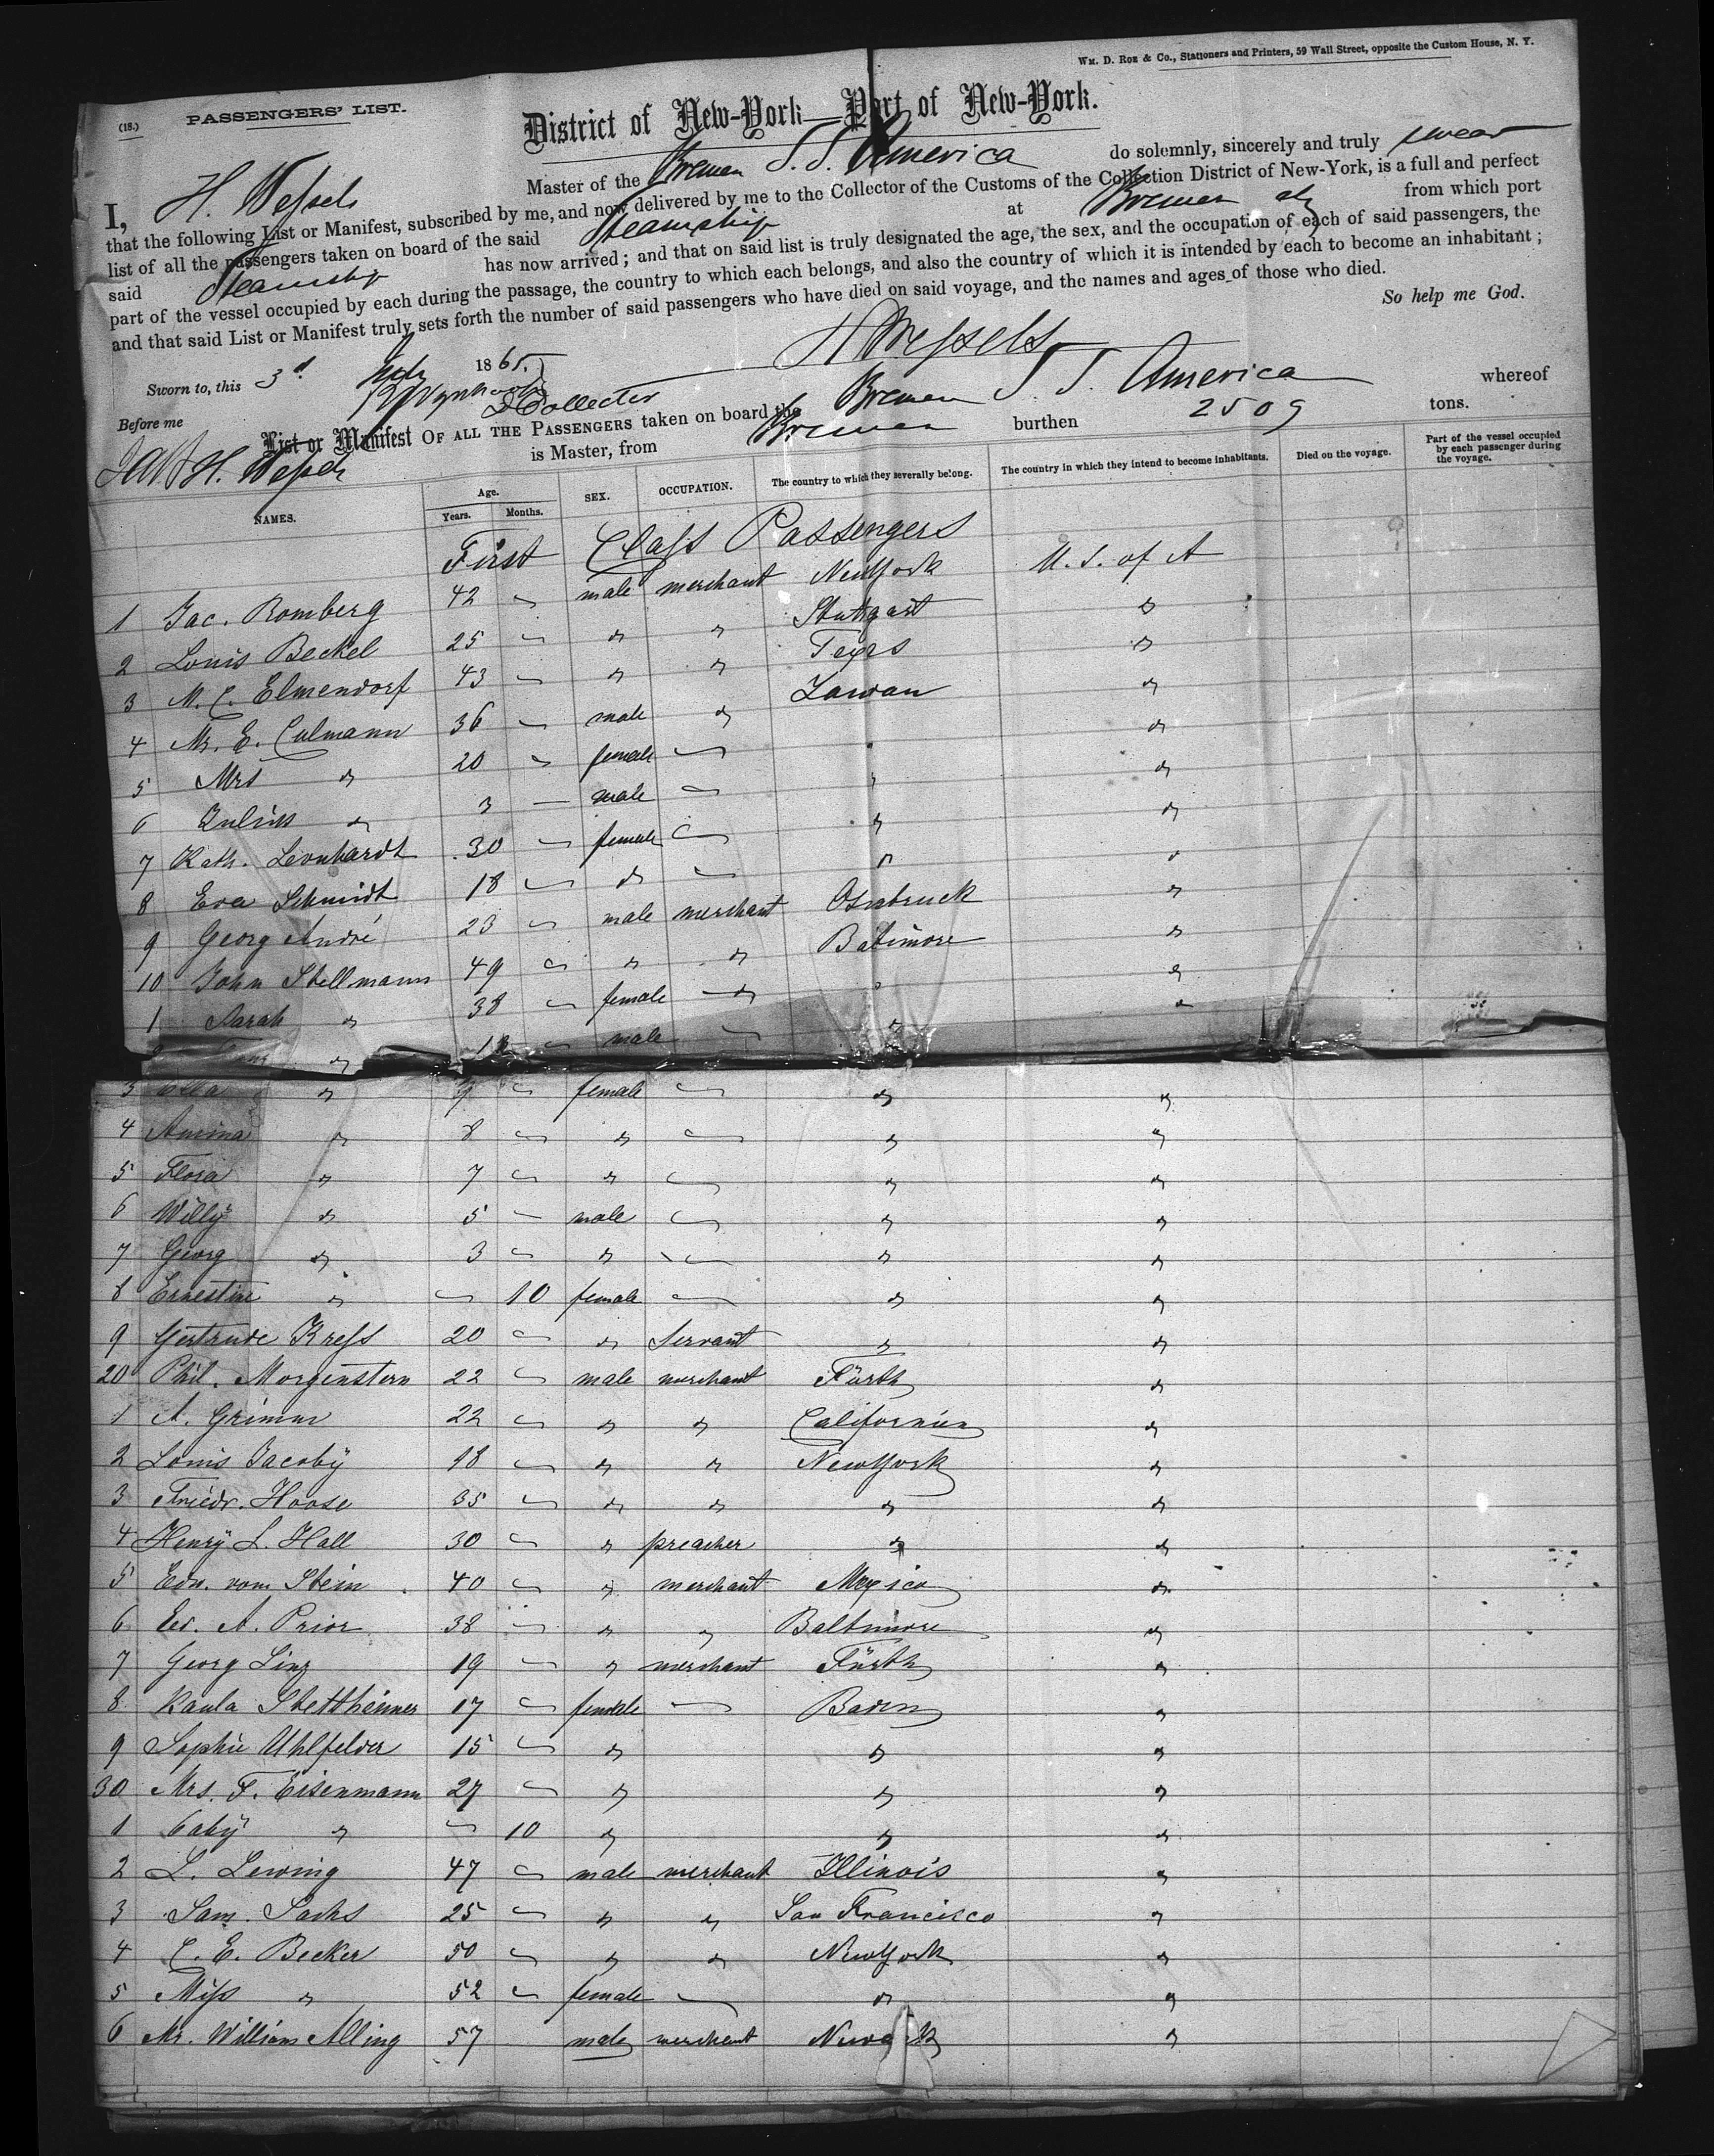 Wm. D. Roe & Co., Stationers and Printers, 59 Wall Street, opposite the Custom House, N. Y.
(18.) PASSENGERS' LIST.
District of New-York—Port of New-York.
I, H. Wessels Master of the Bremen S. S. America do solemnly, sincerely and truly swear
that the following List or Manifest, subscribed by me, and now delivered by me to the Collector of the Customs of the Collection District of New-York, is a full and perfect
list of all the passengers taken on board of the said Steamship at Bremen from which port
said Steamship has now arrived; and that on said list is truly designated the age, the sex, and the occupation of each of said passengers, the
part of the vessel occupied by each during the passage, the country to which each belongs, and also the country of which it is intended by each to become an inhabitant;
and that said List or Manifest truly sets forth the number of said passengers who have died on said voyage, and the names and ages of those who died.
So help me God.
H Wessels
Sworn to, this 3d July 1865.
Before me D Collector
List or Manifest OF ALL THE PASSENGERS taken on board the Bremen S. S. America whereof
H. Wessels is Master, from Bremen burthen 2509 tons.
NAMES. Age. Years. Months. SEX. OCCUPATION. The country to which they severally belong. The country in which they intend to become inhabitants. Died on the voyage. Part of the vessel occupied by each passenger during the voyage.
First Class Passengers
1 Jac. Romberg 42 " male merchant NewYork U. S. of A
2 Louis Beckel 25 " " " Stuttgart "
3 M. C. Elmendorf 43 " " " Texas "
4 Mr. E. Culmann 36 " male " "
5 Mrs " 20 " female " "
6 Julius " 3 — male " "
7 Kath. Leonhardt 30 " female " "
8 Eva Schmidt 18 " " " "
9 Georg André 23 " male merchant Osnabruck "
10 John Stellmann 49 " " " Batimore "
1 Sarah " 38 " female " " "
" male " "
3 " 9 " female " " "
4 " 8 " " " " "
5 Flora " 7 " " " " "
6 Willy " 5 — male " " "
7 Georg " 3 " " " " "
8 Ernestine " " 10 female " " "
9 Gertrude Kress 20 " " Servant " "
20 Phil. Morgenstern 22 " male merchant Fürth "
1 A. Grimm 22 " " " Californien "
2 Louis Jacoby 18 " " " NewYork "
3 Friedr. Hoose 35 " " " " "
4 Henry L. Hall 30 " " preacher " "
5 Edu. vom Stein 40 " " merchant Mexico "
6 Ed. A. Prior 38 " " " Baltimore "
7 Georg Linz 19 " " merchant Fürth "
8 Paula Stettheimer 17 " female " Baden "
9 Sophie Uhlfelder 15 " " " "
30 Mrs. F. Eisenmann 27 " " " "
1 baby " " 10 " " "
2 L. Lewing 47 " male merchant Illinois "
3 Sam. Sachs 25 " " " San Francisco "
4 C. E. Becker 50 " " " NewYork "
5 Miss " 52 " female " " "
6 Mr. William Alling 57 male merchant Newark "